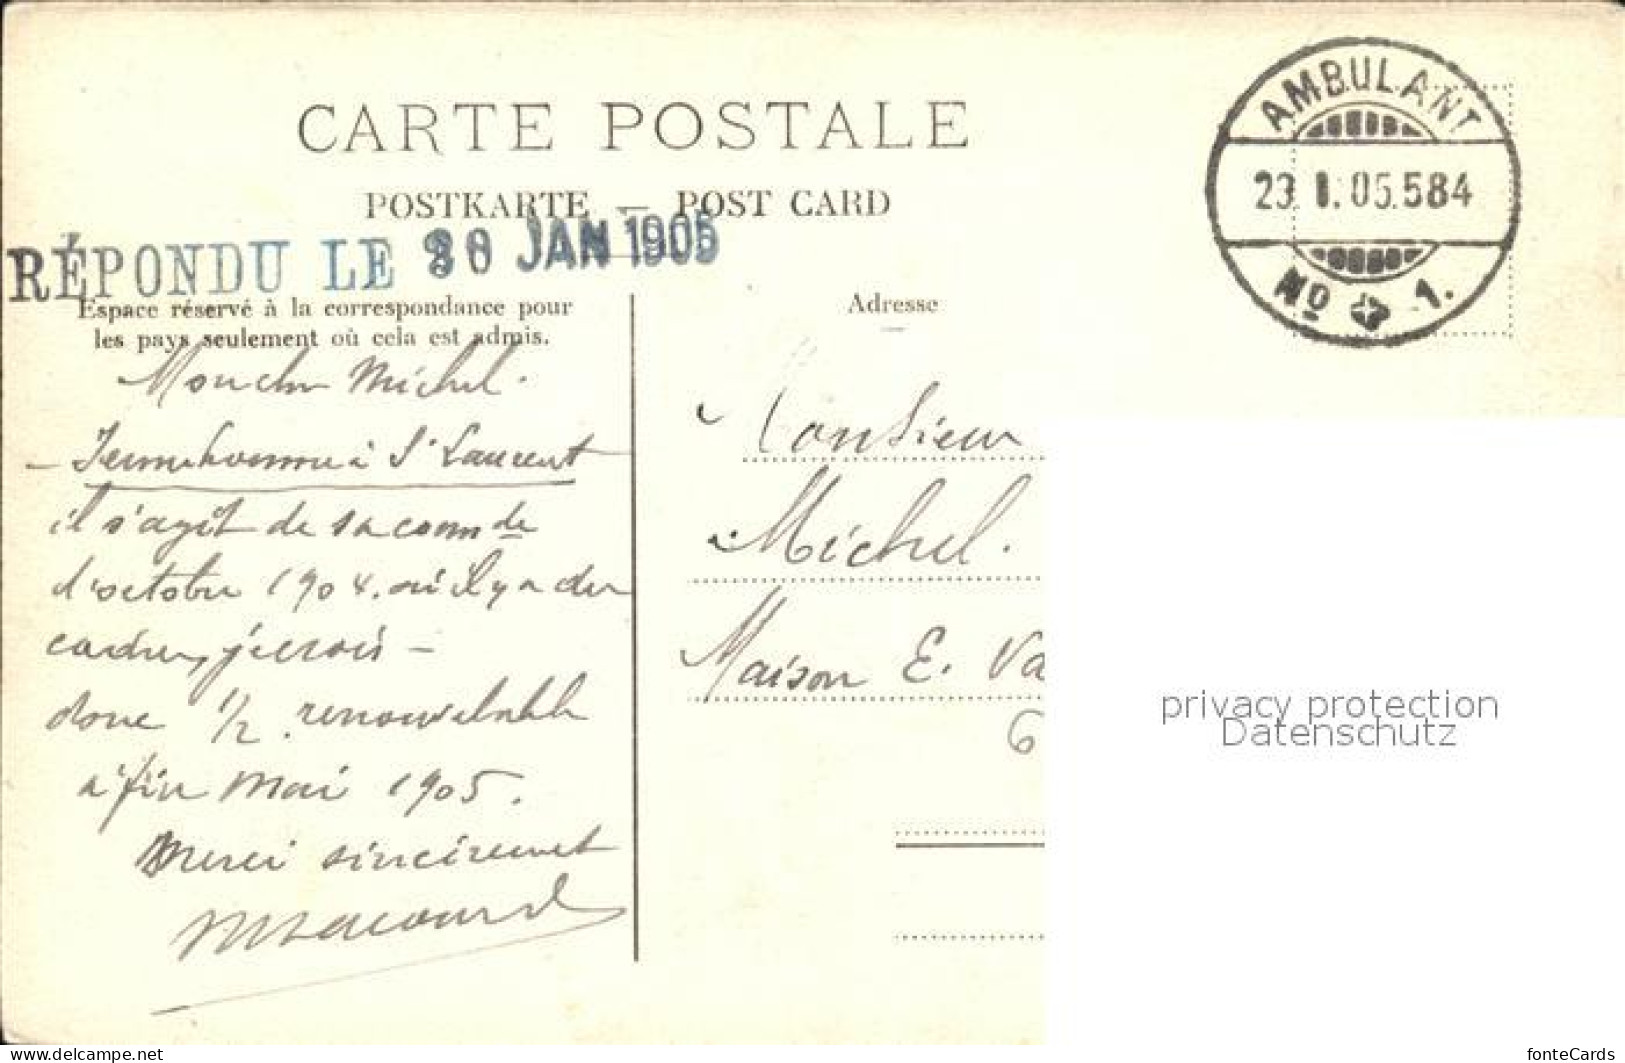 CARTE POSTALE
POSTKARTE — POST CARD
RÉPONDU LE 30 JAN 1905
Espace réservé à la correspondance pour
les pays seulement où cela est admis.
Adresse
AMBULANT
23 I. 05. 584
No 1.
Mon cher Michel.
à St Laurent
il s'agit de sa comm de
d'octobre 1904. où il y a des
cadres, je crois —
donc 1/2 renouvelable
à fin Mai 1905.
Merci sincèrement
Monsieur
Michel.
Maison E. Va
6
privacy protection
Datenschutz
www.delcampe.net
fonteCards